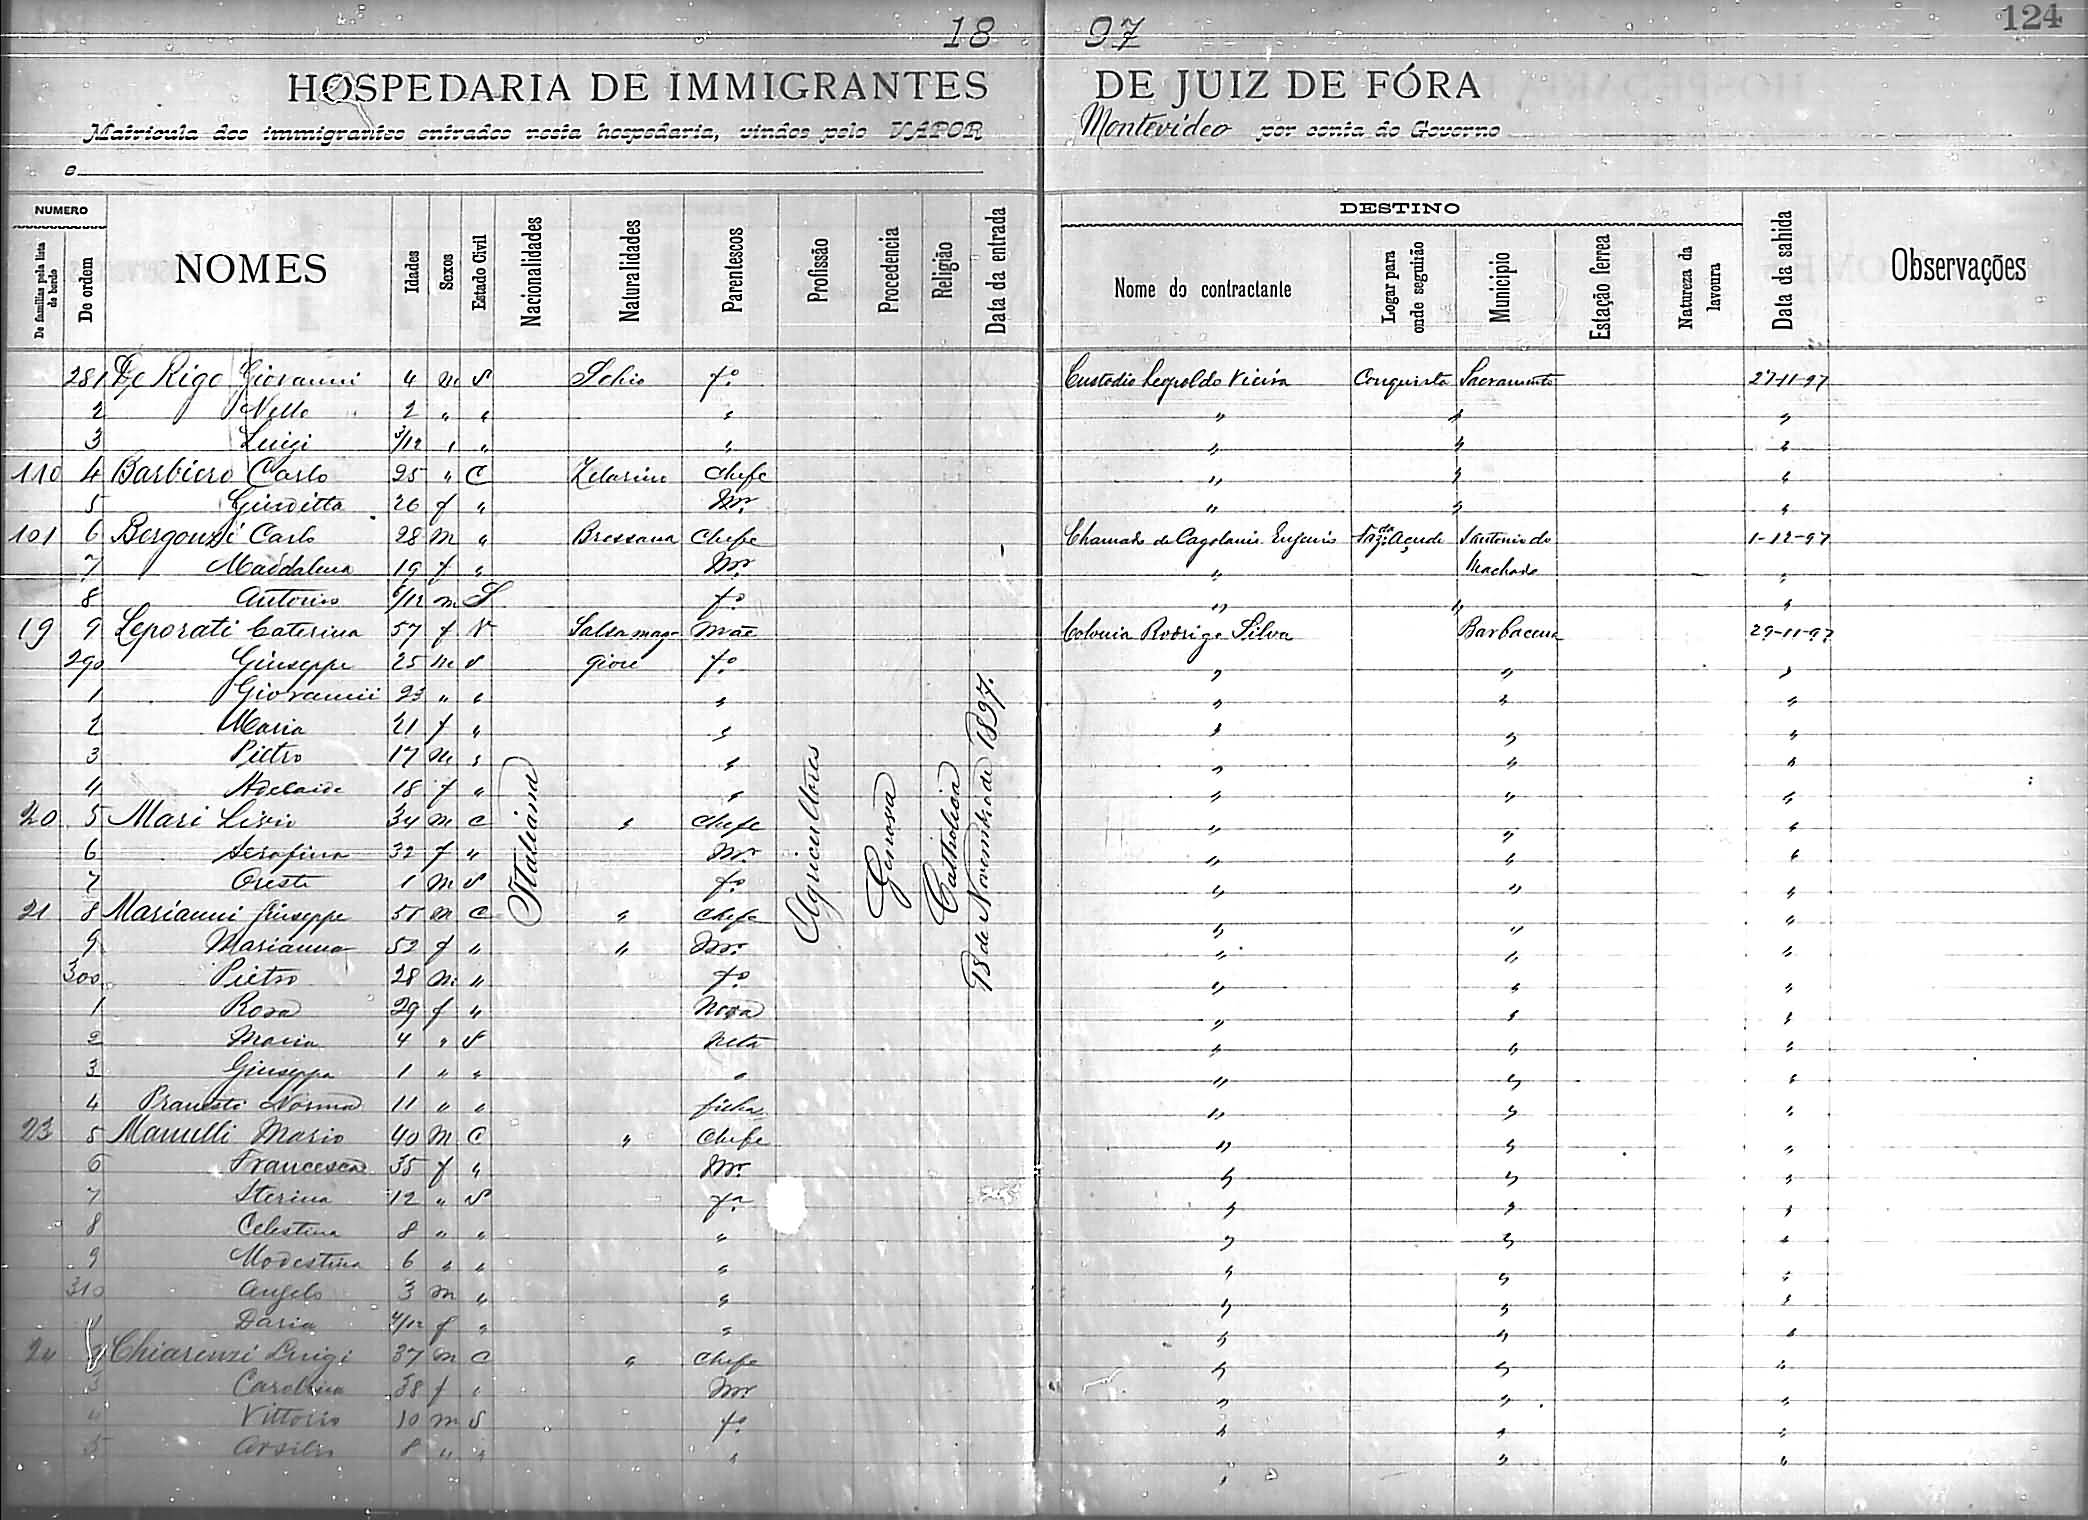 124
18 97
HOSPEDARIA DE IMMIGRANTES DE JUIZ DE FÓRA
Matricula dos immigrantes entrados nesta hospedaria, vindos pelo VAPOR Montevideo por conta do Governo
e
NUMERO DESTINO
De familias pela lista de bordo De ordem NOMES Idades Sexos Estado Civil Nacionalidades Naturalidades Parentescos Profissão Procedencia Religião Data da entrada Nome do contractante Logar para onde seguirão Municipio Estação ferrea Natureza da lavoura Data da sahida Observações
281 De Rigo Giovanni 4 m S Schio fo. Custodio Leopoldo Vieira Conquista Sacramento 27-11-97
2 Nello 2 " " " " " "
3 Luigi 3/12 " " " " " "
110 4 Barbiero Carlo 25 " C Zelarino Chefe " " "
5 Giuditta 26 f " Mr. " " "
101 6 Bergonzi Carlo 28 m " Bressana Chefe Chamado de Eugenio Açude Santonio do 1-12-97
7 Maddalena 19 f " Mr. " Machado "
8 Antonio 6/12 m S fo. " " "
19 9 Leporati Caterina 57 f V Salsamag- Mãe Colonia Rodrigo Silva Barbacena 29-11-97
290 Giuseppe 25 m S giore fo. " " "
1 Giovanni 23 " " " " " "
2 Maria 21 f " " " " "
3 Pietro 17 m " " " " "
4 Adelaide 18 f " " " " "
20 5 Mari Livio 34 m C " Chefe " " "
6 Serafina 32 f " Mr. " " "
7 Oreste 1 m S fo. " " "
21 8 Marianni Giuseppe m C " Chefe " " "
9 Marianna 52 f " " Mr. " " "
300 Pietro 28 m " fo. " " "
1 Rosa 29 f " Nora " " "
2 Maria 4 " S Neta " " "
3 Giuseppa 1 " " " " " "
4 Norma 11 " " filha " " "
23 5 Mario 40 m C " Chefe " " "
6 Francesca 35 f " Mr. " " "
7 Sterina 12 " S fa. " " "
8 Celestina 8 " " " " " "
9 Modestina 6 " " " " " "
310 Angelo 3 m " " " " "
1 Daria f " " " " "
24 2 Chiarenzi Luigi 37 m C " Chefe " " "
3 Carolina 38 f " Mr. " " "
4 Vittorio 10 m S fo. " " "
5 8 " " " " " "
Italiana
Agricultores
Genova
Catholica
18 de Novembro de 1897.